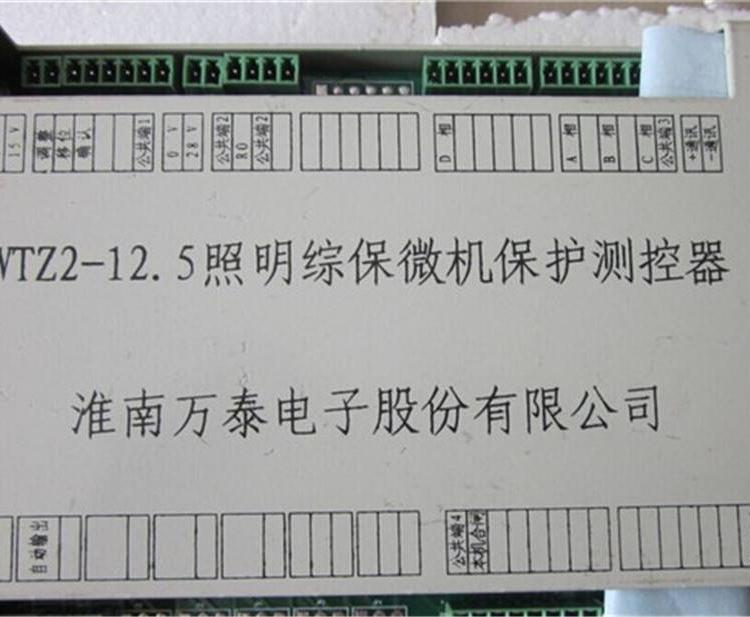 15V
调整
移位
确认
公共端1
0 V
28 V
公共端2
R0
公共端2
D 相
A 相
B 相
C 相
公共端3
+通讯
-通讯
WTZ2-12.5照明综保微机保护测控器
淮南万泰电子股份有限公司
自动输出
公共端4
本机合闸